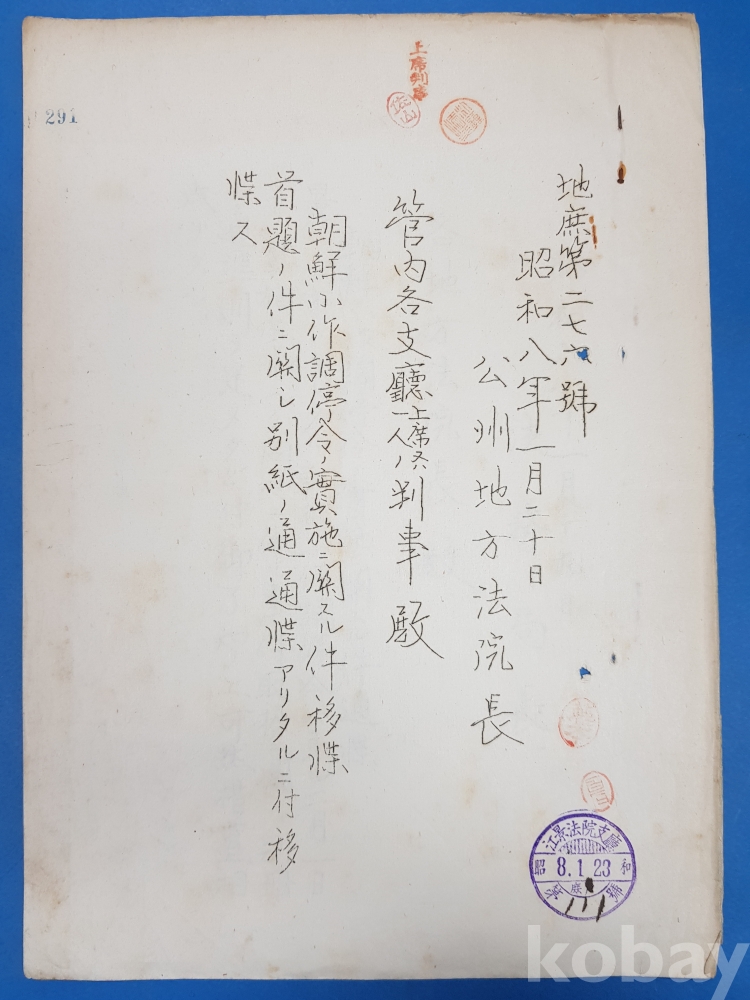 地庶第二七六號
昭和八年一月二十日
公州地方法院長
管内各支廳上席又一人ノ判事殿
朝鮮小作調停令ノ實施ニ關スル件移牒
首題ノ件ニ關シ別紙ノ通通牒アリタルニ付移
牒ス
上席判事
291
江景法院支廳
昭 8.1.23 和
庶 號
kobay